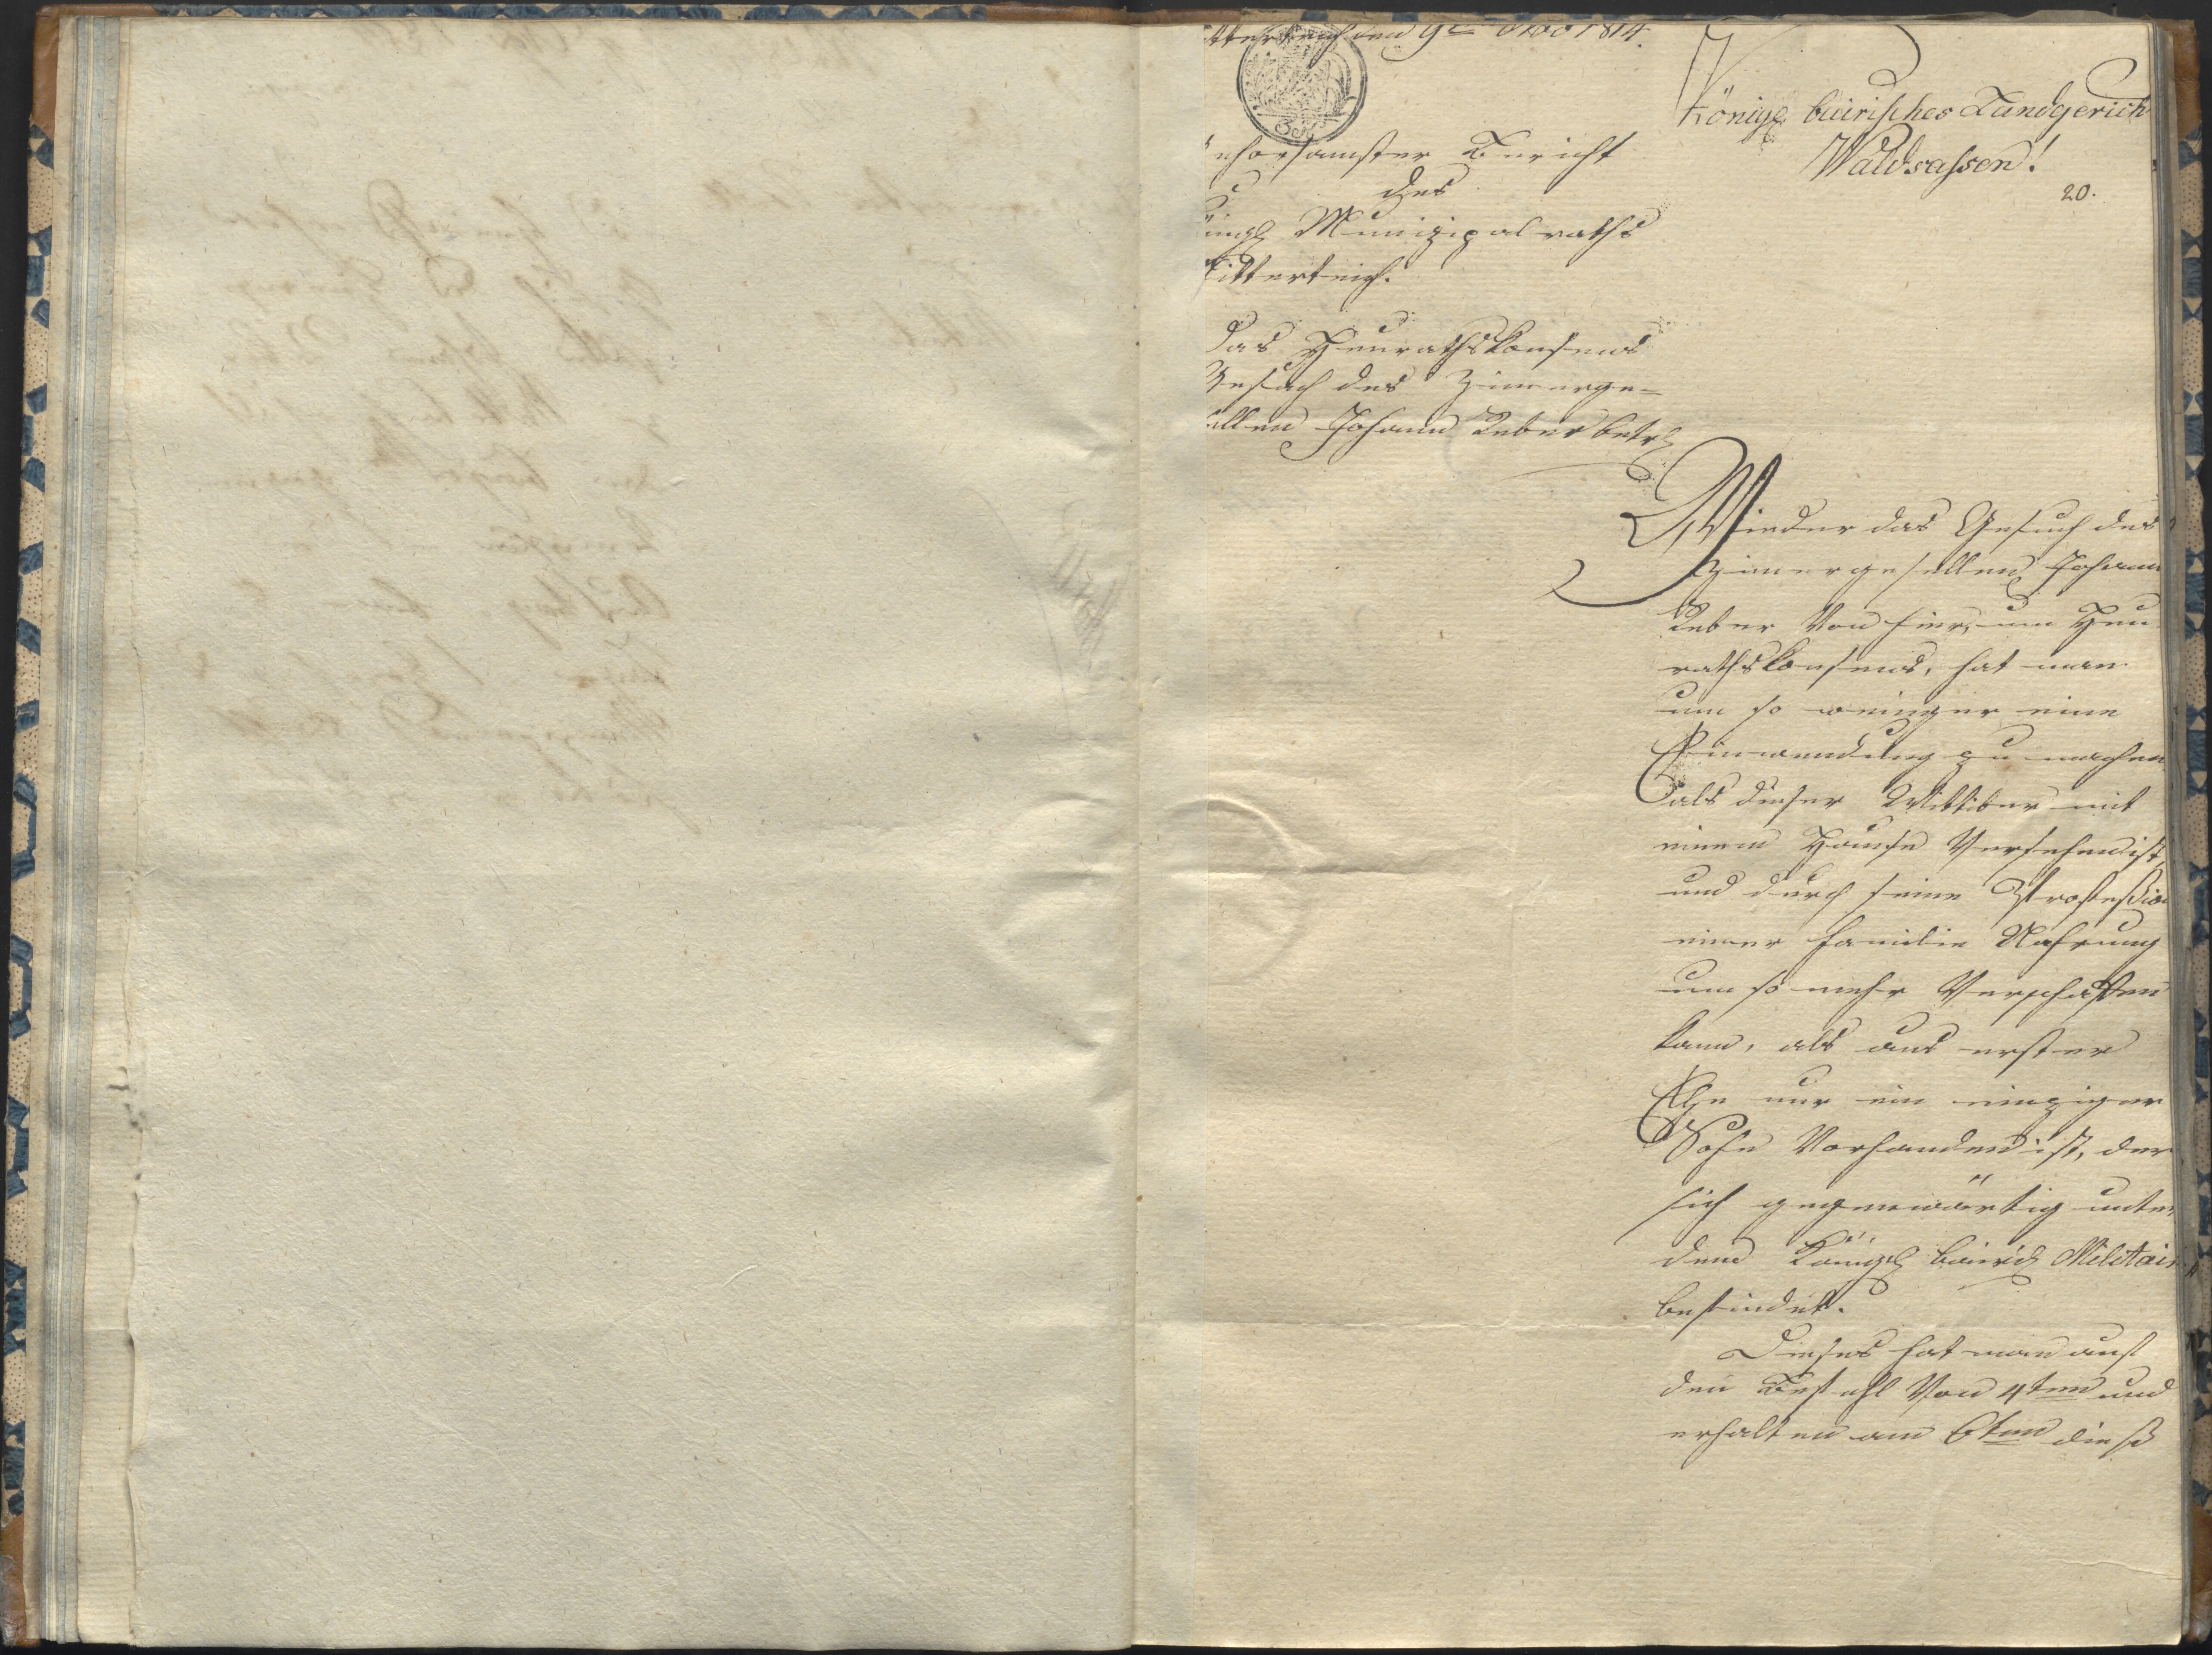 den 9ten 8ber 1814.
Königl. bairisches Landgerich
Waldsassen!
20.
ehorsamster Bericht
des
önigl Munizipalraths
itterteich.
Das Heurathskonsens
Gesuch des Zimerge=
ellen Johann Reber betr
Wieder das Gesuch des
Zimergesellen Johann
Reber von hier, um Heu
rathskonsens, hat man
um so weniger eine
Einwendung zu machen
als dieser Wittiber mit
einem Hause versehen ist,
und durch seine Profeßion
einer Familie Nahrung
um so mehr verschaffen
kann, als aus erster
Ehe nur ein einziger
Sohn vorhanden ist, der
sich gegenwärtig unter
dem Königl bairis Militair
befindet.
Dieses hat man auf
den Befehl von 4ten und
erhalten am 6ten dieß